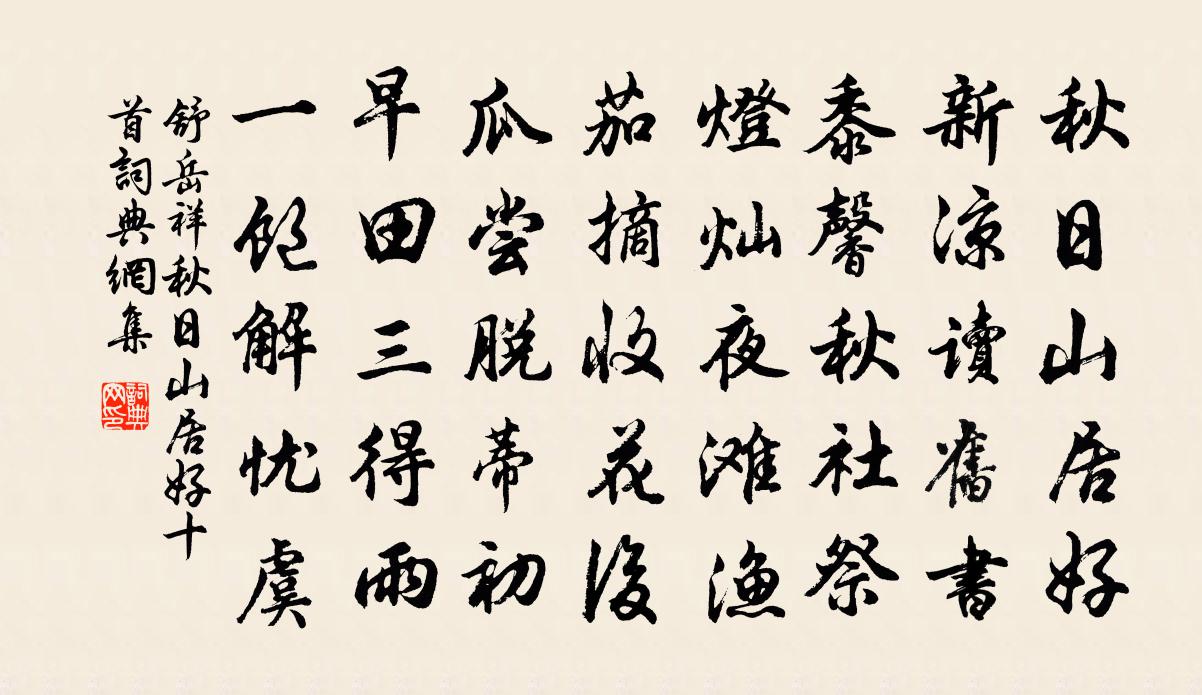 秋日山居好
新涼讀舊書
黍馨秋社祭
燈灿夜滩渔
茄摘收花後
瓜尝脱蒂初
早田三得雨
一飽解忧虞
舒岳祥秋日山居好十
首詞典網集
詞典
网印